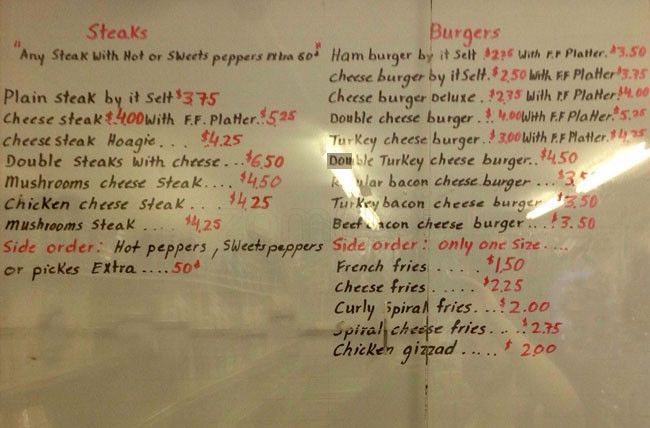 Steaks
"Any Steak With Hot or Sweets peppers Extra 50¢"
Plain steak by it Self $3.75
Cheese steak $4.00 With F.F. Platter. $5.25
cheese steak Hoagie... $4.25
Double Steaks With cheese... $6.50
Mushrooms cheese steak.... $4.50
Chicken cheese steak.... $4.25
mushrooms Steak.... $4.25
Side order: Hot peppers, Sweets peppers
or pickes Extra .... 50¢
Burgers
Ham burger by it Self. With F.F Platter. $3.50
cheese burger by it Self. $2.50 With F.F Platter $3.75
Cheese burger Deluxe. $2.75 With F.F Platter $4.00
Double cheese burger. $4.00 With F.F Platter. $5.25
Turkey cheese burger. $3.00 With F.F. Platter. $4.25
Double Turkey cheese burger.. $4.50
Regular bacon cheese burger ...
Turkey bacon cheese burger $3.50
Beef bacon cheese burger ... $3.50
Side order: only one Size....
French fries ..... $1.50
Cheese fries ..... $2.25
Curly Spiral fries... $2.00
Spiral cheese fries.... $2.75
Chicken gizzad ..... $2.00